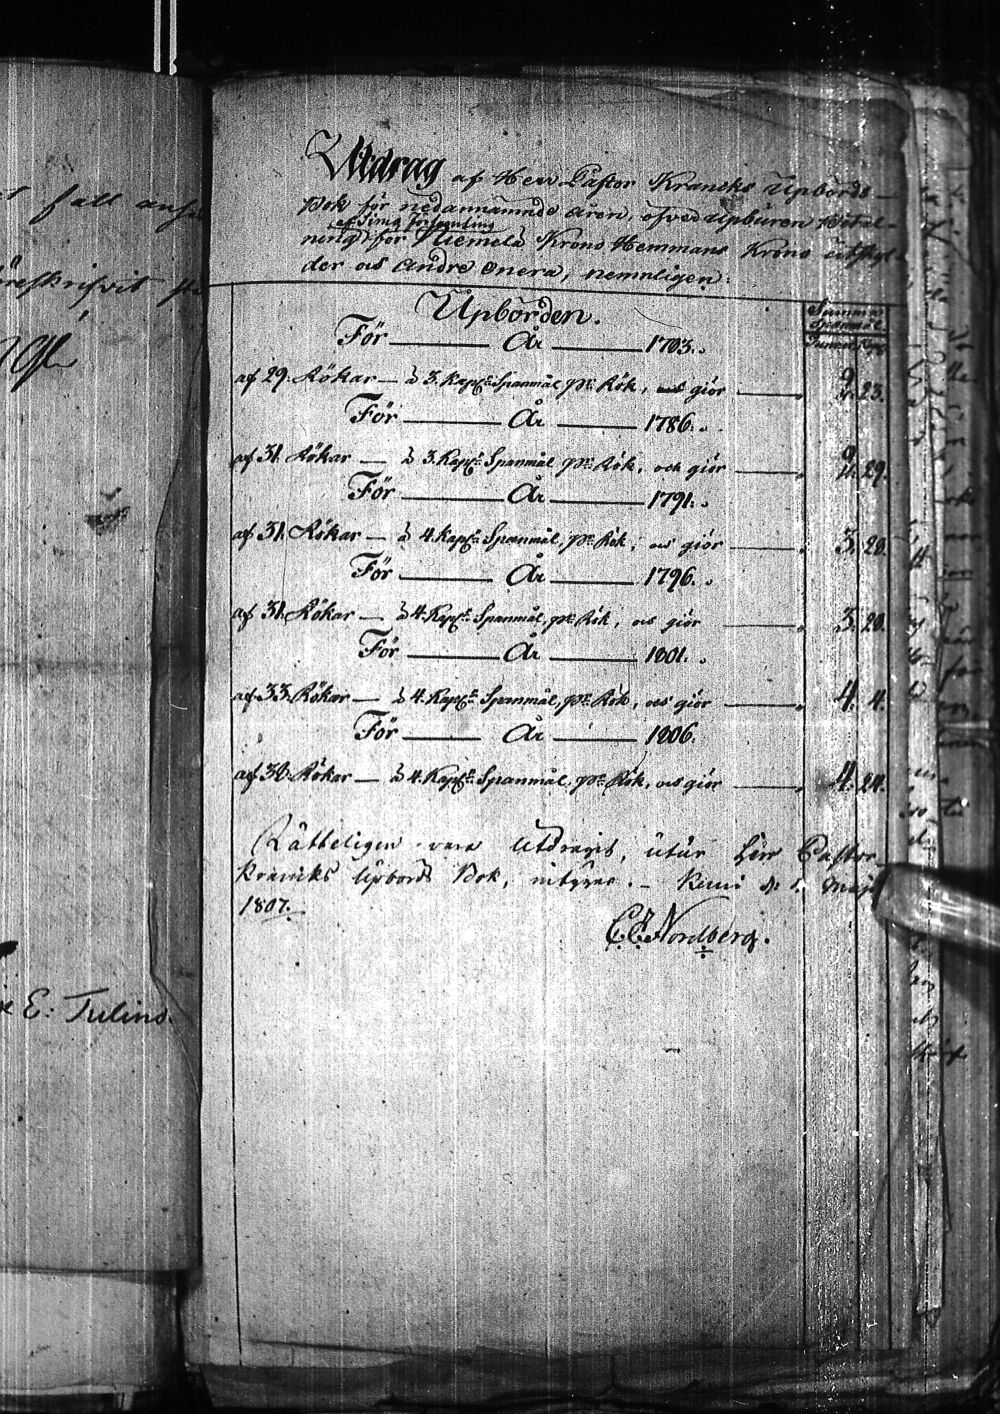 Utdrag af Herr Pastor Krancks Upbörds-
Bok för nedannämnde åren, öfver upburen Betal-
af Simo Församling
ning för Niemelä Krono Hemmans Krono utskyl-
der och andre onera, nemnligen:
Upbörden.
Summa
Spanmål
Tunnor Kapp
För År 1783.
af 29. Rökar — à 3. Kappr Spanmål pr Rök, och giör 2. 23.
För År 1786.
af 31. Rökar — à 3. Kappr Spanmål pr Rök, och giör 2. 29.
För År 1791.
af 31. Rökar — à 4. Kappr Spanmål, pr Rök, och giör 3. 28.
För År 1796.
af 31. Rökar — à 4. Kappr Spanmål, pr Rök, och giör 3. 28.
För År 1801.
af 33. Rökar — à 4. Kappr Spanmål, pr Rök, och giör 4. 4.
För År 1806.
af 38. Rökar — à 4. Kappr Spanmål, pr Rök, och giör 4. 24.
Rätteligen vara Utdragit, utur Herr Pastor
Krancks Upbörds Bok, intygar. — Kemi d: Maji
1807.
C. E. Nordberg.
fall
E: Tulind